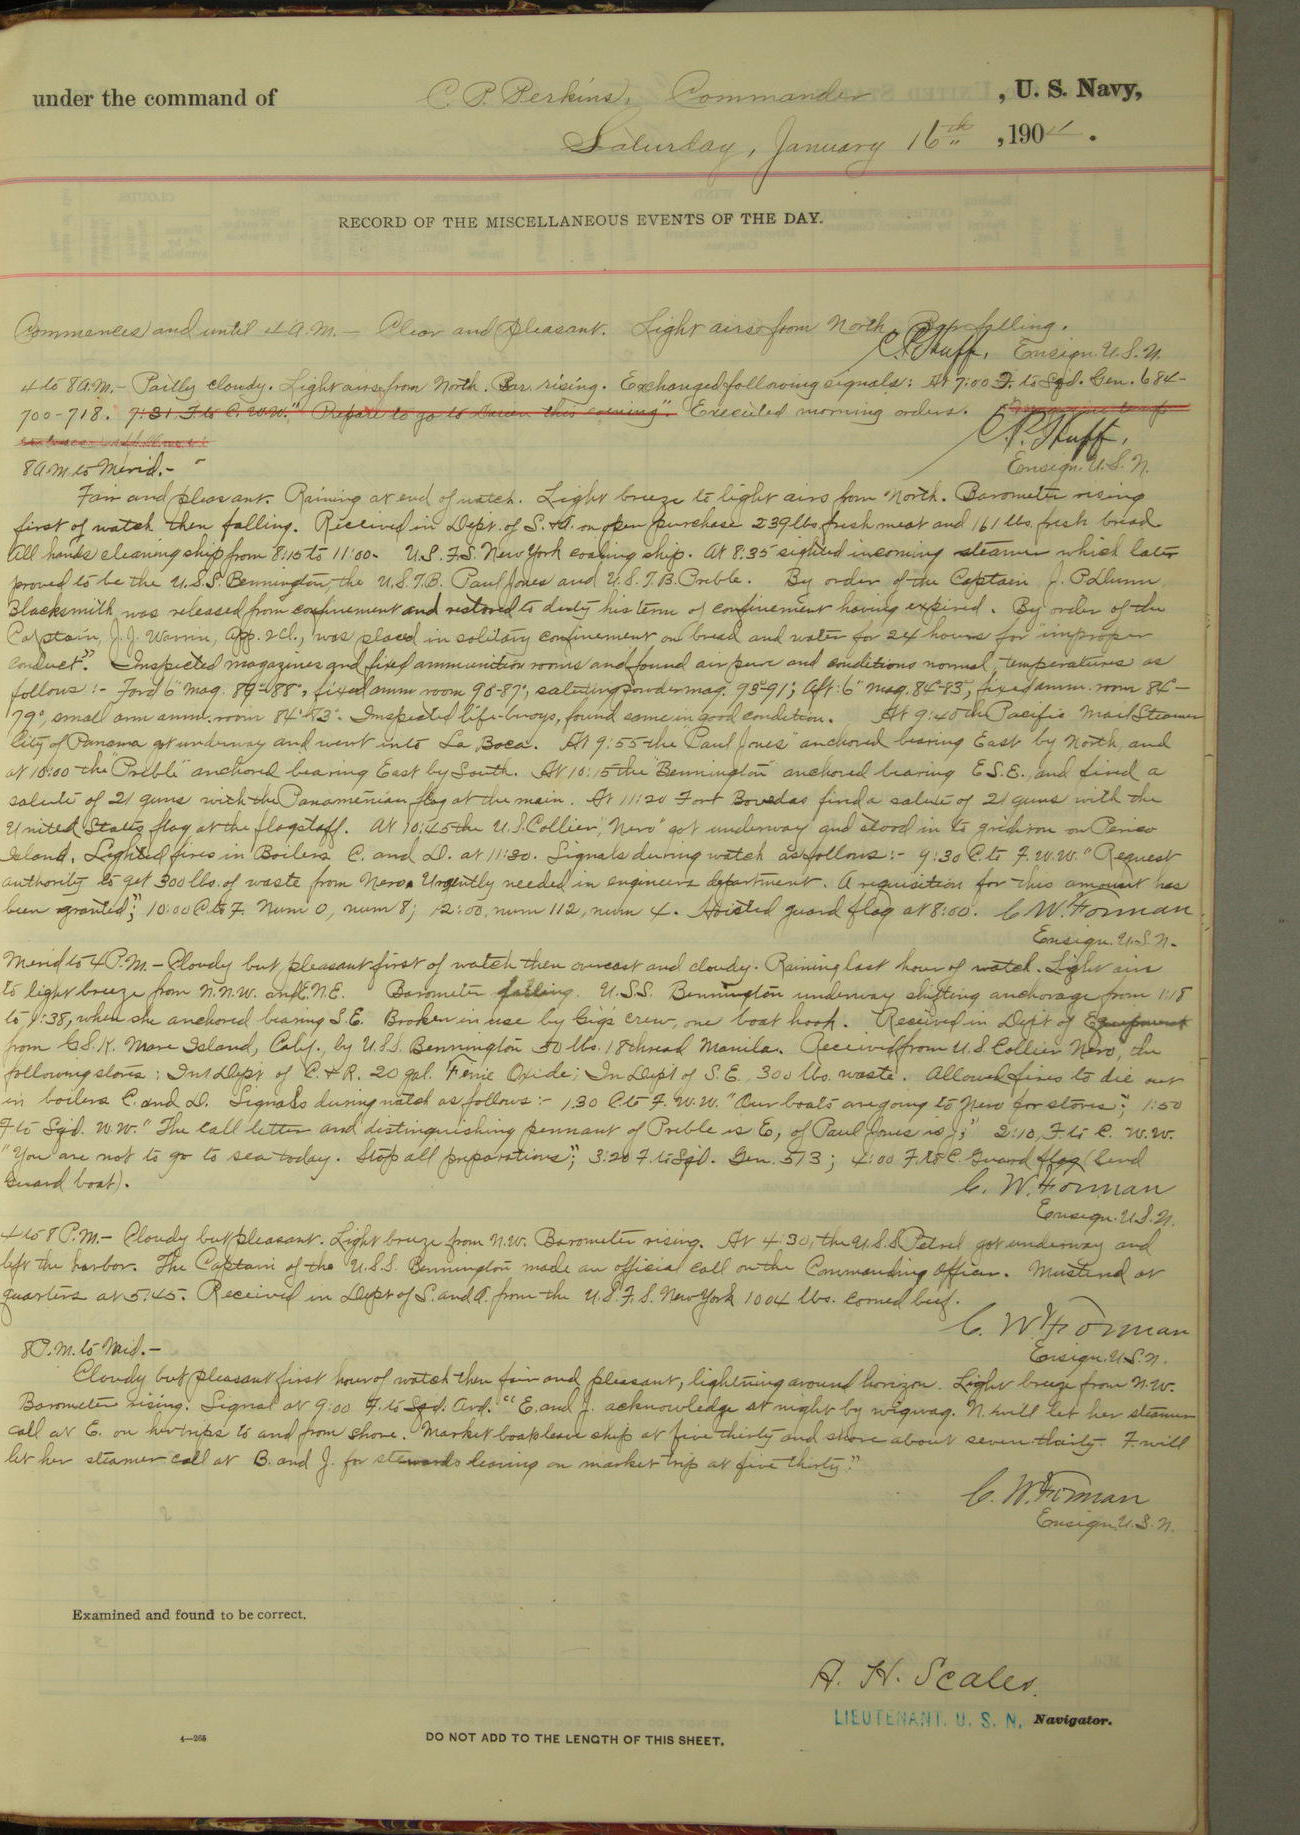 under the command of C. P. Perkins, Commander, U. S. Navy,
Saturday, January 16th, 1904.
RECORD OF THE MISCELLANEOUS EVENTS OF THE DAY.
Commences and until 4 A.M. — Clear and pleasant. Light airs from North. Bar. falling.
C. P. Huff, Ensign U.S.N.
4 to 8 A.M. — Partly cloudy. Light airs from North. Bar. rising. Exchanged following signals: At 7:00 F. to Sqd. Gen. 684-
700-718. 7:31 F. to C. W.W. "Prepare to go to Darien this evening". Executed morning orders.
C. P. Huff,
8 A.M. to Merid. —
Ensign. U.S.N.
Fair and pleasant. Raining at end of watch. Light breeze to light airs from North. Barometer rising
first of watch then falling. Received in Dept. of S. & A. on open purchase 239 lbs. fresh meat and 161 lbs. fresh bread.
All hands cleaning ship from 8:15 to 11:00. U.S.F.S. New York coaling ship. At 8:35 sighted incoming steamer which later
proved to be the U.S.S. Bennington the U.S.T.B. Paul Jones and U.S.T.B. Preble. By order of the Captain J. P. Dunn
Blacksmith was released from confinement and restored to duty his term of confinement having expired. By order of the
Captain, J. J. Warrin, App. 2 Cl., was placed in solitary confinement on bread and water for 24 hours for "improper
conduct". Inspected magazines and fixed ammunition rooms and found air pure and conditions normal, temperatures as
follows :- Ford 6" mag. 89°-88°, fixed amm room 90-87°, saluting powder mag. 93°-91°; Aft: 6" mag. 84°-83°, fixed amm. room 84°-
79°, small arm amm. room 84°-83°. Inspected life-buoys, found same in good condition. At 9:40 the Pacific Mail Steamer
City of Panama got underway and went into La Boca. At 9:55 the "Paul Jones" anchored bearing East by North, and
at 10:00 the "Preble" anchored bearing East by South. At 10:15 the "Bennington" anchored bearing E.S.E., and fired a
salute of 21 guns with the Panamenian flag at the main. At 11:20 Fort Bovedas fired a salute of 21 guns with the
United States flag at the flagstaff. At 10:45 the U.S. Collier, "Nero" got underway and stood in to gridiron on Perico
Island. Lighted fires in Boilers C. and D. at 11:30. Signals during watch as follows :- 9:30 C. to F. W.W. "Request
authority to get 300 lbs. of waste from Nero. Urgently needed in engineers department. A requisition for this amount has
been granted"; 10:00 C. to F. Num 0, num 8; 12:00, num 112, num 4. Hoisted guard flag at 8:00. C. W. Forman
Ensign. U.S.N.
Merid to 4 P.M. — Cloudy but pleasant first of watch then overcast and cloudy. Raining last hour of watch. Light airs
to light breeze from N.N.W. and N.E. Barometer falling. U.S.S. Bennington underway shifting anchorage from 1:18
to 1:38, when she anchored bearing S.E. Broken in use by Gig's crew, one boat hook. Received in Dept of Equipment
from G.S.K. Mare Island, Calif., by U.S.S. Bennington 50 lbs. 18 thread Manila. Received from U.S. Collier Nero, the
following stores: In Dept of C. & R. 20 gal. Ferric Oxide; In Dept of S.E. 300 lbs. waste. Allowed fires to die out
in boilers C. and D. Signals during watch as follows :- 1:30 C. to F. W.W. "Our boats are going to Nero for stores"; 1:50
F. to Sqd. W.W. "The call letter and distinguishing pennant of Preble is E, of Paul Jones is J;" 2:10, F. to C. W.W.
"You are not to go to sea today. Stop all preparations"; 3:20 F. to Sqd. Gen. 573; 4:00 F. to C. Guard flag (Send
Guard boat).
C. W. Forman
Ensign. U.S.N.
4 to 8 P.M. — Cloudy but pleasant. Light breeze from N.W. Barometer rising. At 4:30, the U.S.S. Petrel got underway and
left the harbor. The Captain of the U.S.S. Bennington made an official call on the Commanding Officer. Mustered at
quarters at 5:45. Received in Dept of S. and A. from the U.S.F.S. New York 1004 lbs. corned beef.
C. W. Forman
8 P.M. to Mid. —
Ensign. U.S.N.
Cloudy but pleasant first hour of watch then fair and pleasant, lightning around horizon. Light breeze from N.W.
Barometer rising. Signal at 9:00 F. to Sqd. Ard. "E. and J. acknowledge at night by wigwag. N. will let her steamer
call at E. on her trips to and from shore. Market boats leave ship at five thirty and shore about seven-thirty. F. will
let her steamer call at B. and J. for stewards leaving on market trip at five thirty."
C. W. Forman
Ensign. U.S.N.
Examined and found to be correct.
A. H. Scales.
LIEUTENANT. U. S. N. Navigator.
4—265
DO NOT ADD TO THE LENGTH OF THIS SHEET.